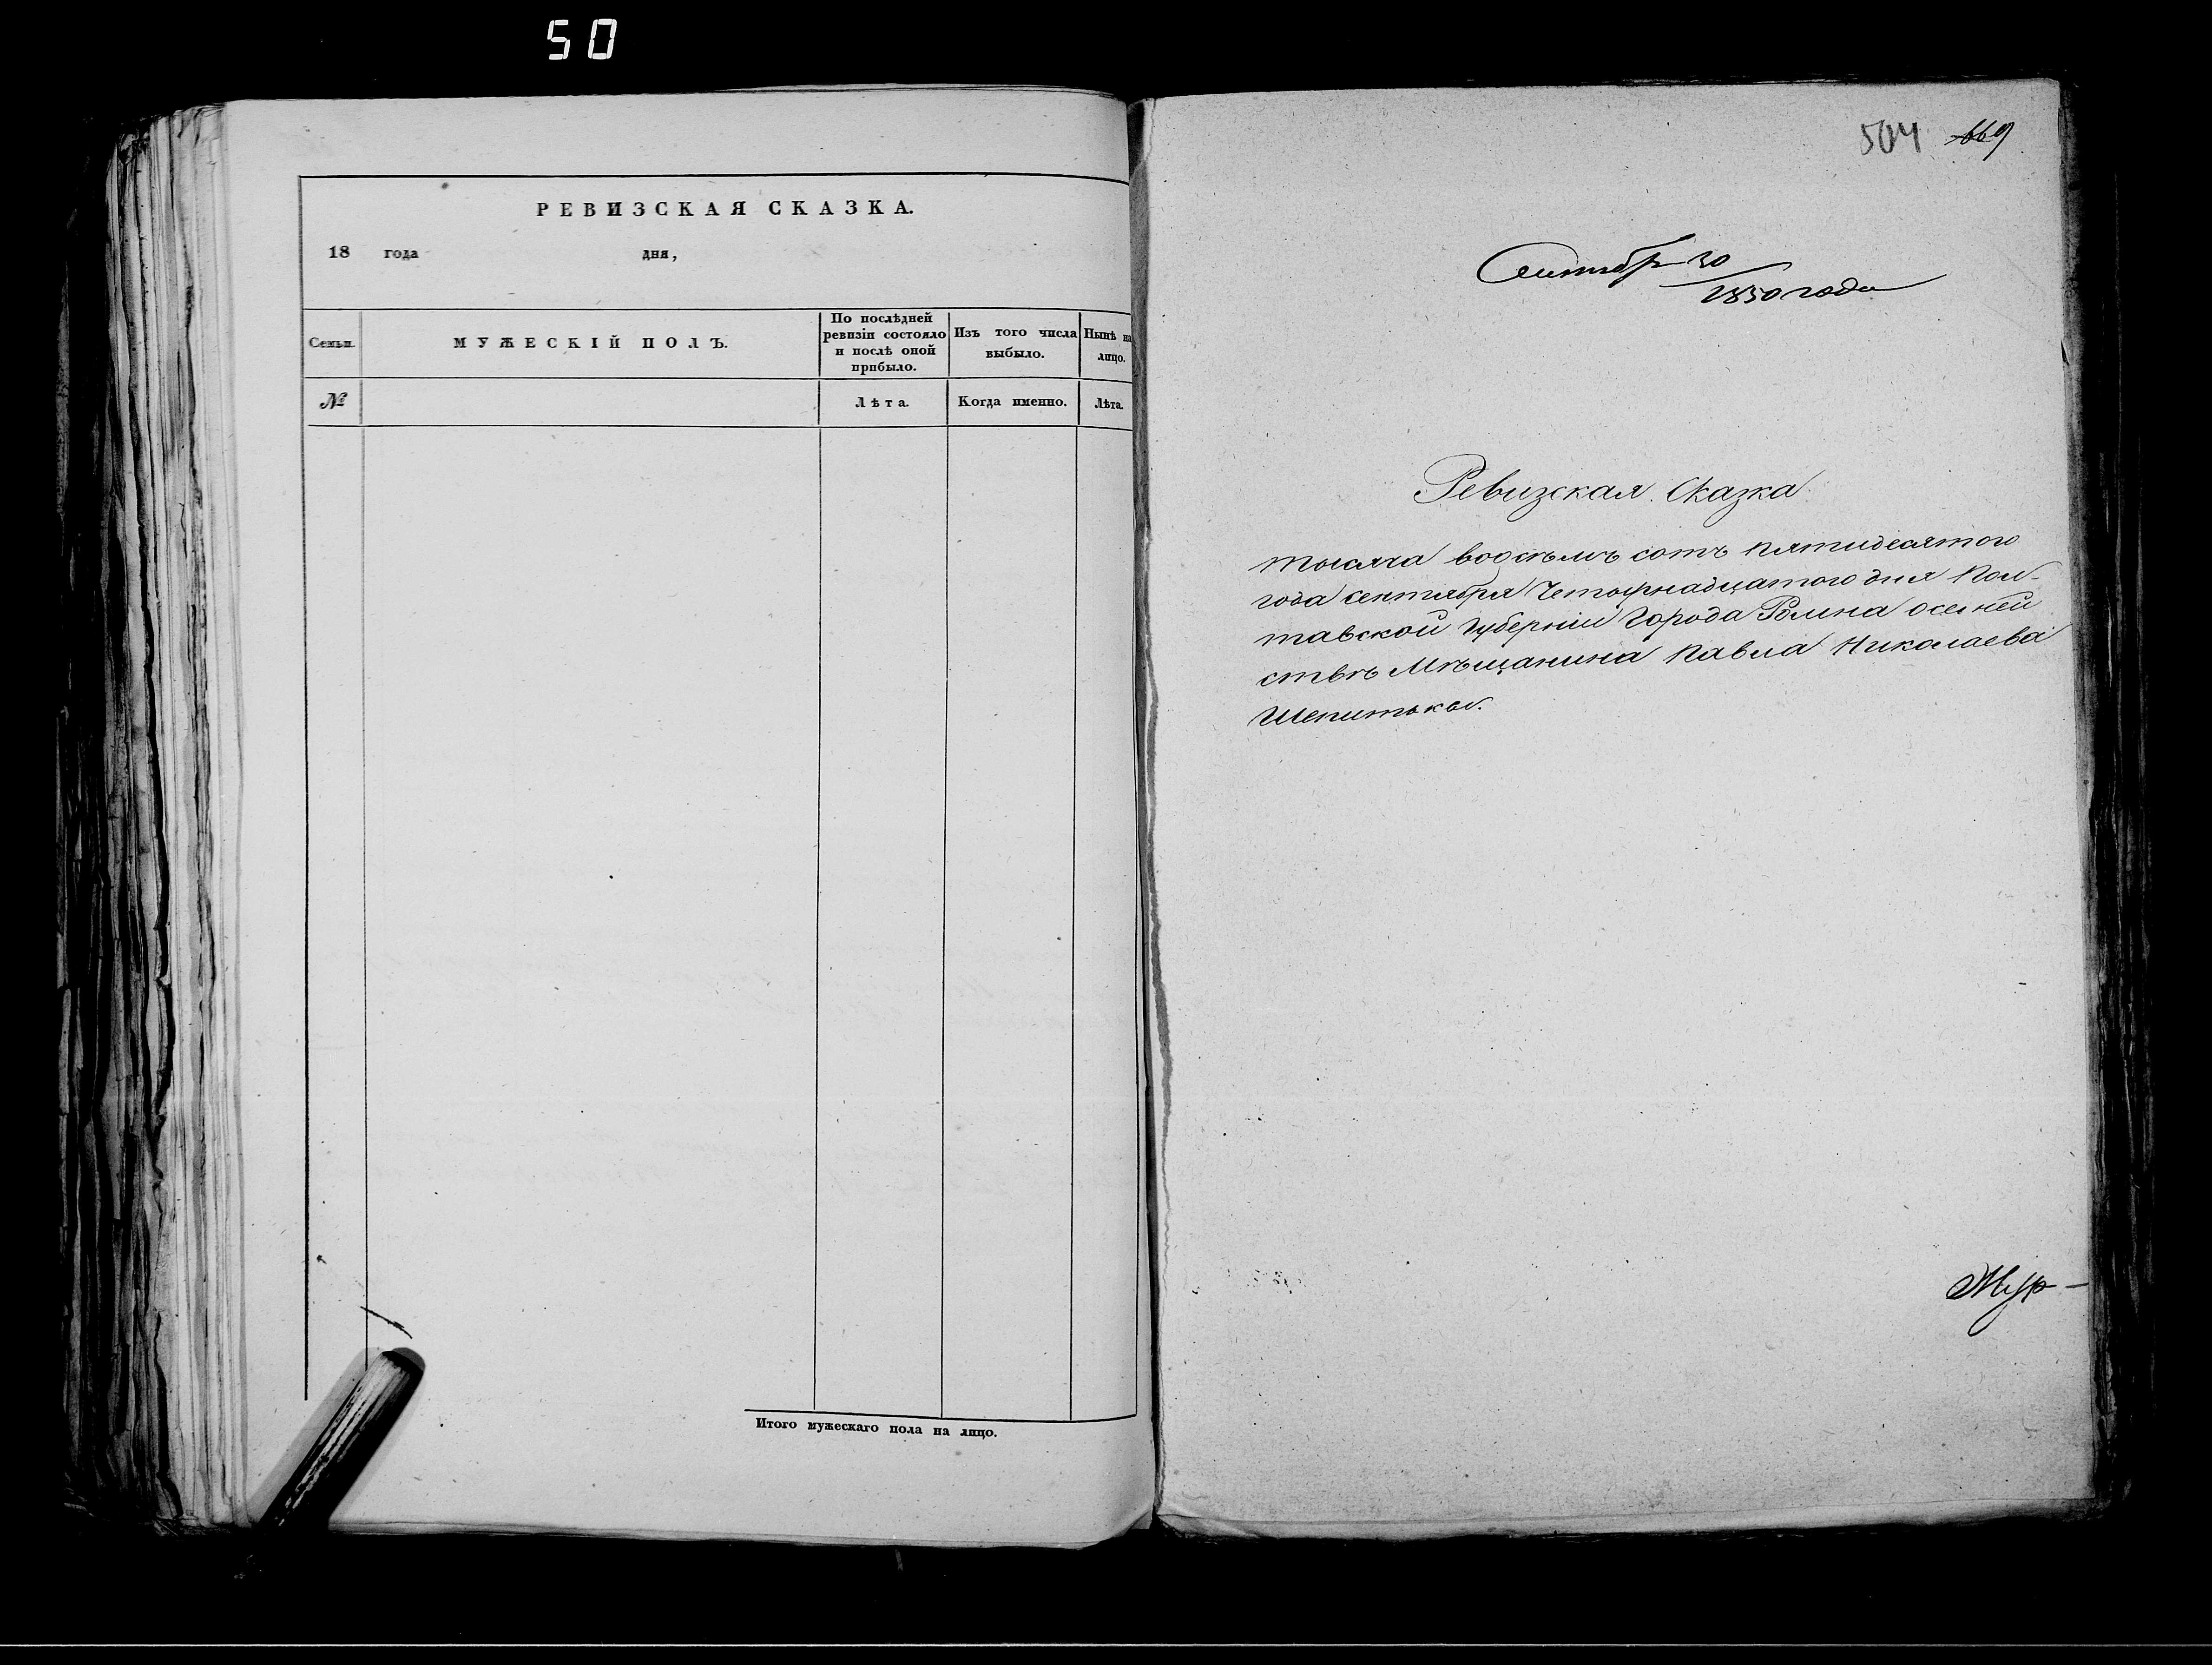 50
РЕВИЗСКАЯ СКАЗКА.
18 года дня,
Семьи.
МУЖЕСКІЙ ПОЛЪ.
По послѣдней ревизіи состояло и послѣ оной прибыло.
Изъ того числа выбыло.
Нынѣ на лицо.
№
Лѣта.
Когда именно.
Лѣта.
Итого мужескаго пола на лицо.
504 669
Сентябр 30
1850 года
Ревизская Сказка
тысяча восемъ сотъ пятидесятого
года сентября Четырнадцатого дня Пол-
тавской губерніи Города Ромна о семей
ствѣ Мѣщанина Павла Николаева
Шепитька.